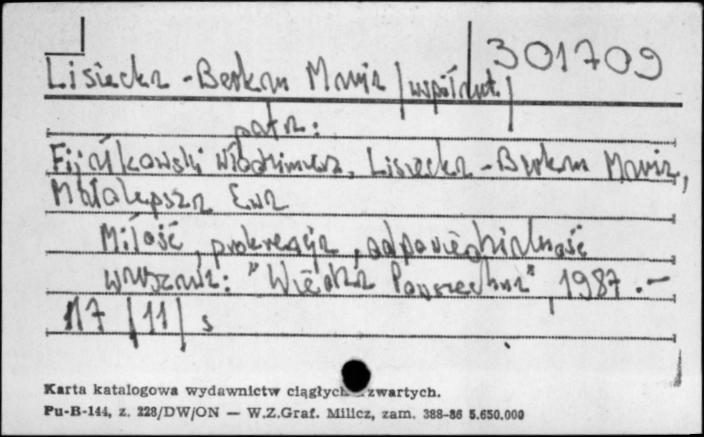 301709
Lisiecka - Berkan Maria /współaut./
patrz:
Fijałkowski Włodzimierz, Lisiecka - Berkan Maria,
Małolepsza Ewa
Miłość, prokreacja, odpowiedzialność
Warszawa: "Wiedza Powszechna", 1987. -
117 /11/ s
Karta katalogowa wydawnictw ciągłych zwartych.
Pu-B-144, z. 228/DW/ON — W.Z.Graf. Milicz, zam. 388-86 5.650.000